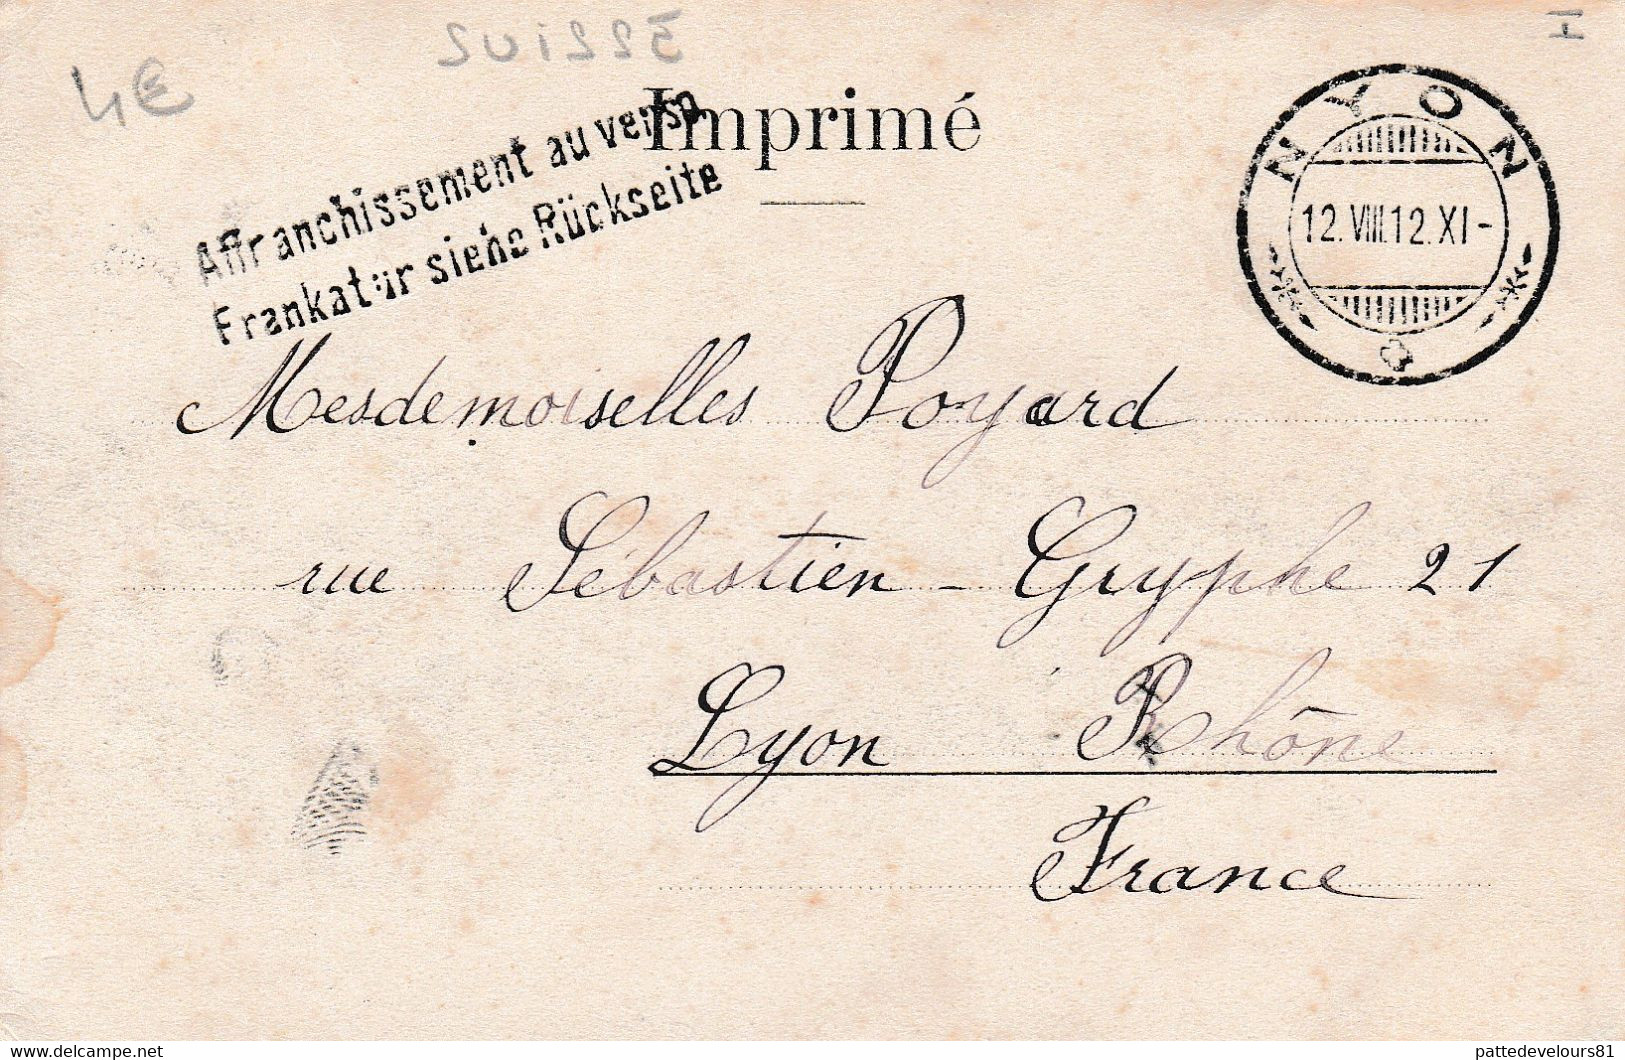 4€
SUISSE
I
Imprimé
Affranchissement au verso
Frankatur siehe Rückseite
NYON
12.VIII.12.XI-
Mesdemoiselles Poyard
rue Sébastien-Gryphe 21
Lyon Rhône
France
www.delcampe.net
pattedevelours81